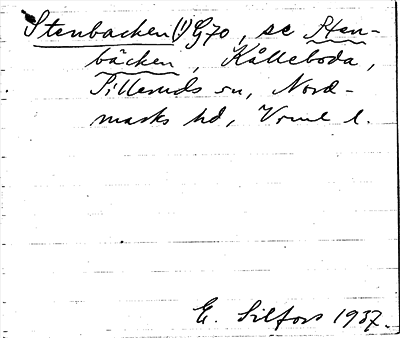 Stenbacken (1) G70, se Sten-
bäcken, Kålleboda,
Silleruds sn, Nord-
marks hd, Vrml l.
E. Silfors 1937.